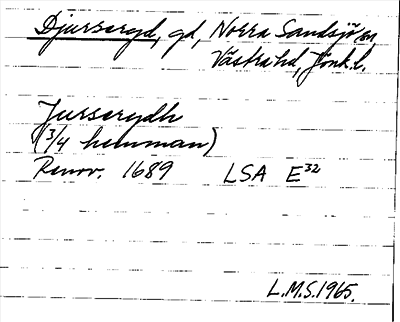 Djursergd, gd, Norra Sandsjö sn
Västra hd, Jönk.l.
Jursserydh
(3/4 hemman)
Renov. 1689 LSA E32
L.M.S. 1965.